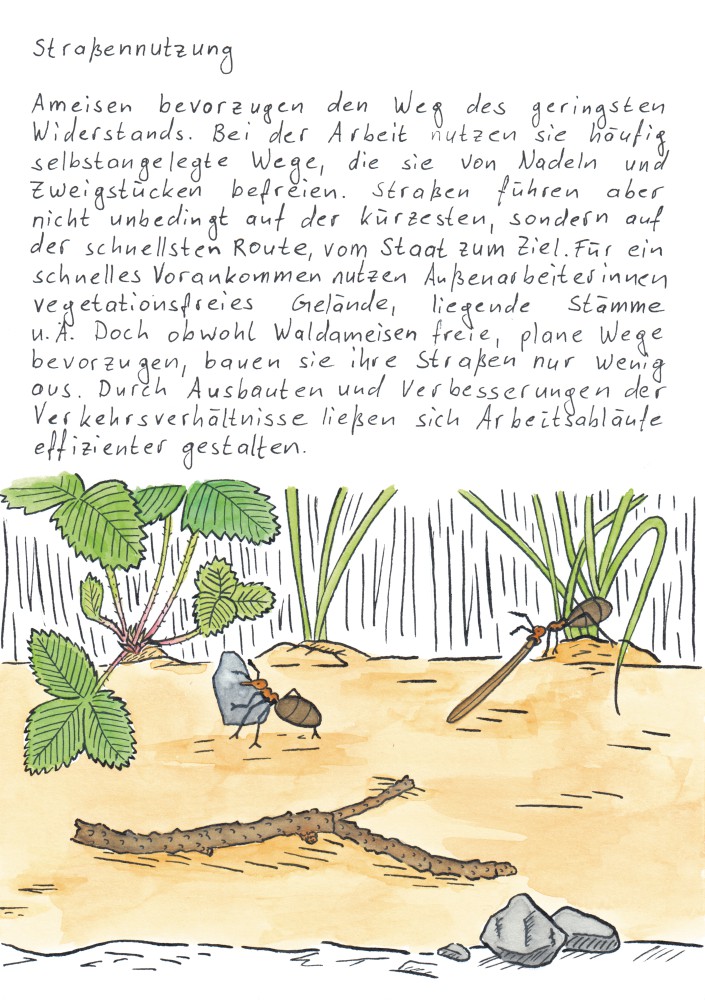 Straßennutzung
Ameisen bevorzugen den Weg des geringsten
Widerstands. Bei der Arbeit nutzen sie häufig
selbstangelegte Wege, die sie von Nadeln und
Zweigstücken befreien. Straßen führen aber
nicht unbedingt auf der kürzesten, sondern auf
der schnellsten Route, vom Staat zum Ziel. Für ein
schnelles Vorankommen nutzen Außenarbeiterinnen
vegetationsfreies Gelände, liegende Stämme
u.Ä. Doch obwohl Waldameisen freie, plane Wege
bevorzugen, bauen sie ihre Straßen nur wenig
aus. Durch Ausbauten und Verbesserungen der
Verkehrsverhältnisse ließen sich Arbeitsabläufe
effizienter gestalten.